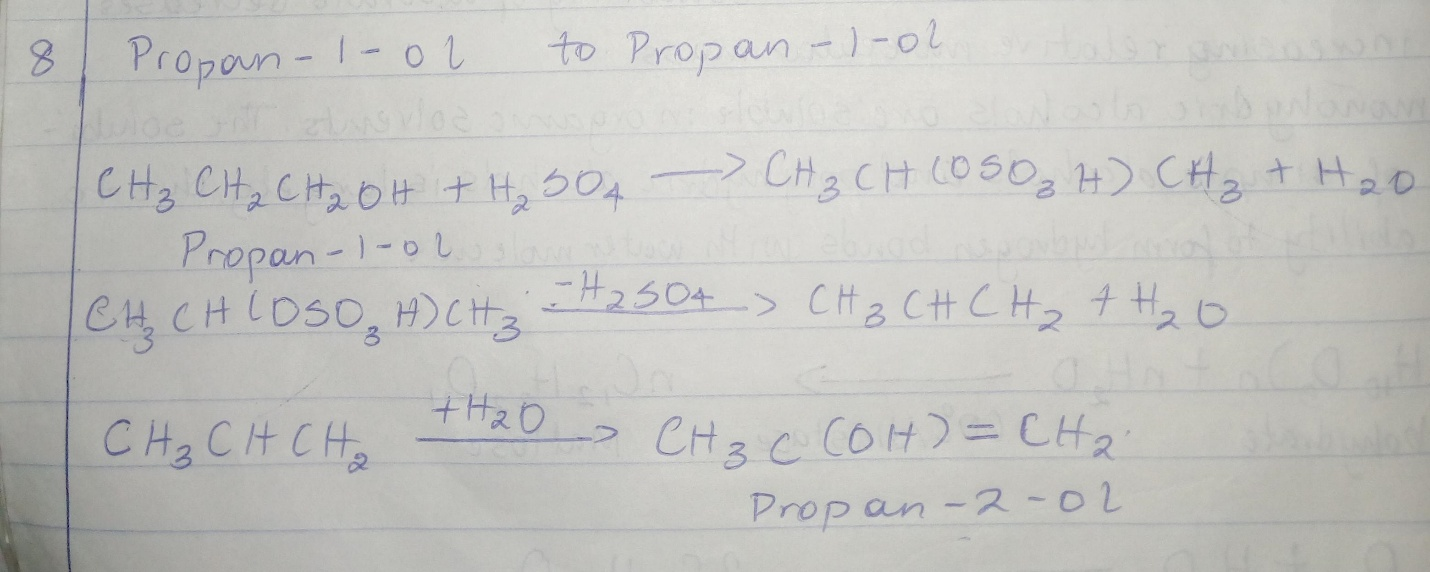 8 Propan-1-ol to Propan-1-ol
CH₃CH₂CH₂OH + H₂SO₄ → CH₃CH(OSO₃H)CH₃ + H₂O
Propan-1-ol
CH₃CH(OSO₃H)CH₃ -H₂SO₄→ CH₃CHCH₂ + H₂O
CH₃CHCH₂ +H₂O→ CH₃C(OH)=CH₂.
Propan-2-ol